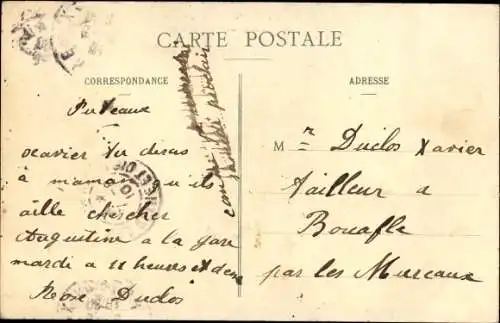 CARTE POSTALE
CORRESPONDANCE
ADRESSE
Puteaux
xavier tu diras
à maman qu ils
aille chercher
Augustine a la gare
mardi a 11 heures et deme
Rose Duclos
M r Duclos Xavier
Tailleur a
Bouafle
par les Mureaux